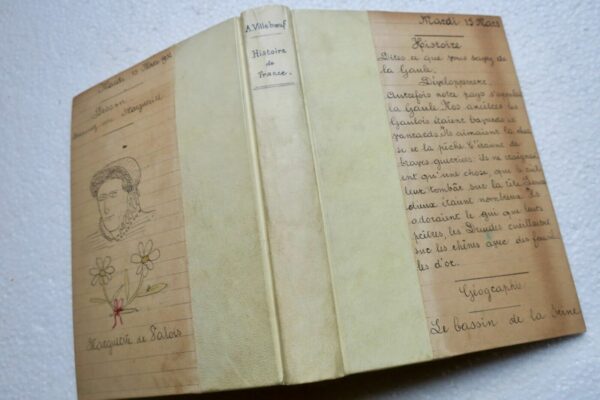 Mardi 15 Mars
Dessin
Marguerite
Marguerite de Valois
A. Villebœuf
Histoire
de
France.
Mardi 15 Mars
Histoire
Dites ce que vous savez de
la Gaule.
Développement.
Autrefois notre pays s'appelait
la Gaule. Nos ancêtres les
Gaulois étaient bavards et
vantards. Ils aimaient la chas
se et la pêche. C'étaient de
braves guerriers: ils ne craignai
ent qu'une chose, que le ciel
leur tombât sur la tête. Leurs
dieux étaient nombreux. Ils
adoraient le gui que leurs
prêtres, les Druides cueillaient
sur les chênes avec des faucil
les d'or.
Géographie
Le bassin de la Seine